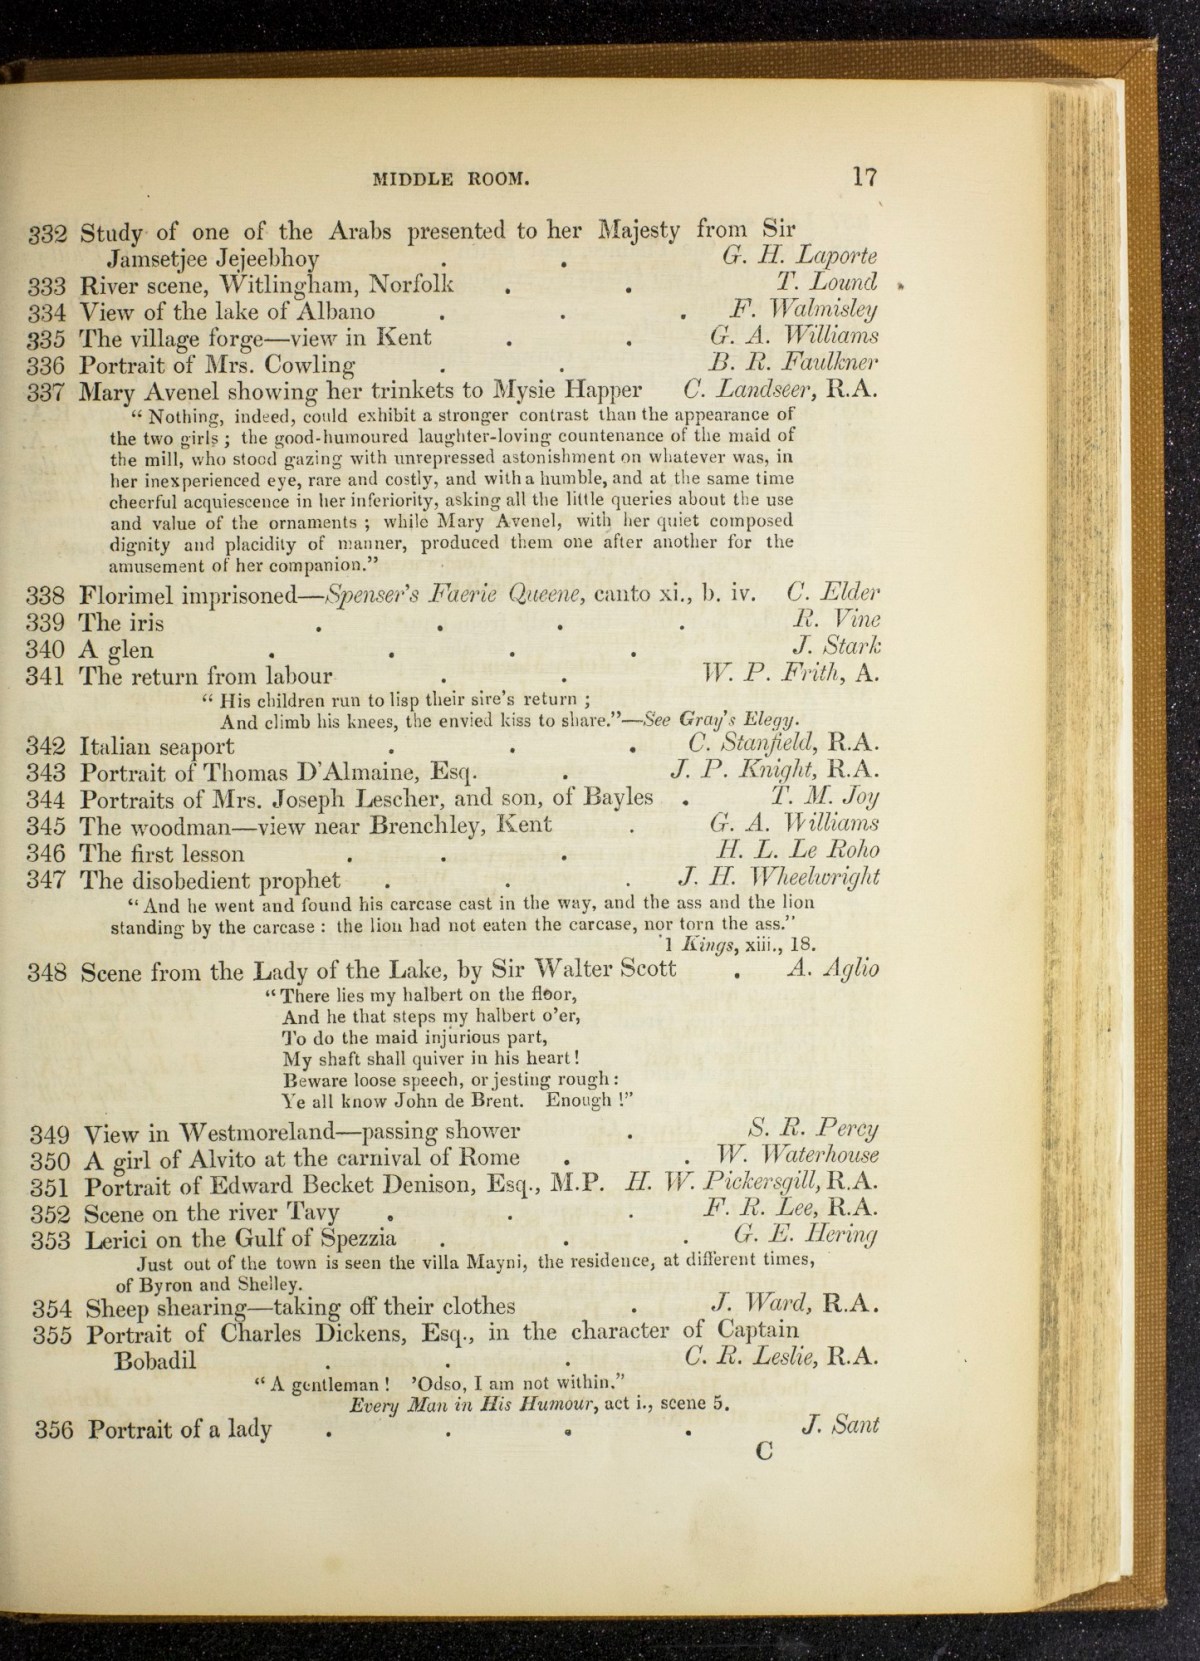 MIDDLE ROOM. 17
332 Study of one of the Arabs presented to her Majesty from Sir
Jamsetjee Jejeebhoy . . G. H. Laporte
333 River scene, Witlingham, Norfolk . . T. Lound
334 View of the lake of Albano . . . F. Walmisley
335 The village forge—view in Kent . . G. A. Williams
336 Portrait of Mrs. Cowling . . B. R. Faulkner
337 Mary Avenel showing her trinkets to Mysie Happer C. Landseer, R.A.
“Nothing, indeed, could exhibit a stronger contrast than the appearance of
the two girls; the good-humoured laughter-loving countenance of the maid of
the mill, who stood gazing with unrepressed astonishment on whatever was, in
her inexperienced eye, rare and costly, and with a humble, and at the same time
cheerful acquiescence in her inferiority, asking all the little queries about the use
and value of the ornaments; while Mary Avenel, with her quiet composed
dignity and placidity of manner, produced them one after another for the
amusement of her companion.”
338 Florimel imprisoned—Spenser's Faerie Queene, canto xi., b. iv. C. Elder
339 The iris . . . . R. Vine
340 A glen . . . . J. Stark
341 The return from labour . . W. P. Frith, A.
“His children run to lisp their sire's return;
And climb his knees, the envied kiss to share.”—See Gray's Elegy.
342 Italian seaport . . . C. Stanfield, R.A.
343 Portrait of Thomas D'Almaine, Esq. . J. P. Knight, R.A.
344 Portraits of Mrs. Joseph Lescher, and son, of Bayles . T. M. Joy
345 The woodman—view near Brenchley, Kent . G. A. Williams
346 The first lesson . . . H. L. Le Roho
347 The disobedient prophet . . . J. H. Wheelwright
“And he went and found his carcase cast in the way, and the ass and the lion
standing by the carcase: the lion had not eaten the carcase, nor torn the ass.”
1 Kings, xiii., 18.
348 Scene from the Lady of the Lake, by Sir Walter Scott . A. Aglio
“There lies my halbert on the floor,
And he that steps my halbert o'er,
To do the maid injurious part,
My shaft shall quiver in his heart!
Beware loose speech, or jesting rough:
Ye all know John de Brent. Enough!”
349 View in Westmoreland—passing shower . S. R. Percy
350 A girl of Alvito at the carnival of Rome . . W. Waterhouse
351 Portrait of Edward Becket Denison, Esq., M.P. H. W. Pickersgill, R.A.
352 Scene on the river Tavy . . . F. R. Lee, R.A.
353 Lerici on the Gulf of Spezzia . . . G. E. Hering
Just out of the town is seen the villa Mayni, the residence, at different times,
of Byron and Shelley.
354 Sheep shearing—taking off their clothes . J. Ward, R.A.
355 Portrait of Charles Dickens, Esq., in the character of Captain
Bobadil . . . C. R. Leslie, R.A.
“A gentleman! 'Odso, I am not within.”
Every Man in His Humour, act i., scene 5.
356 Portrait of a lady . . . . J. Sant
C